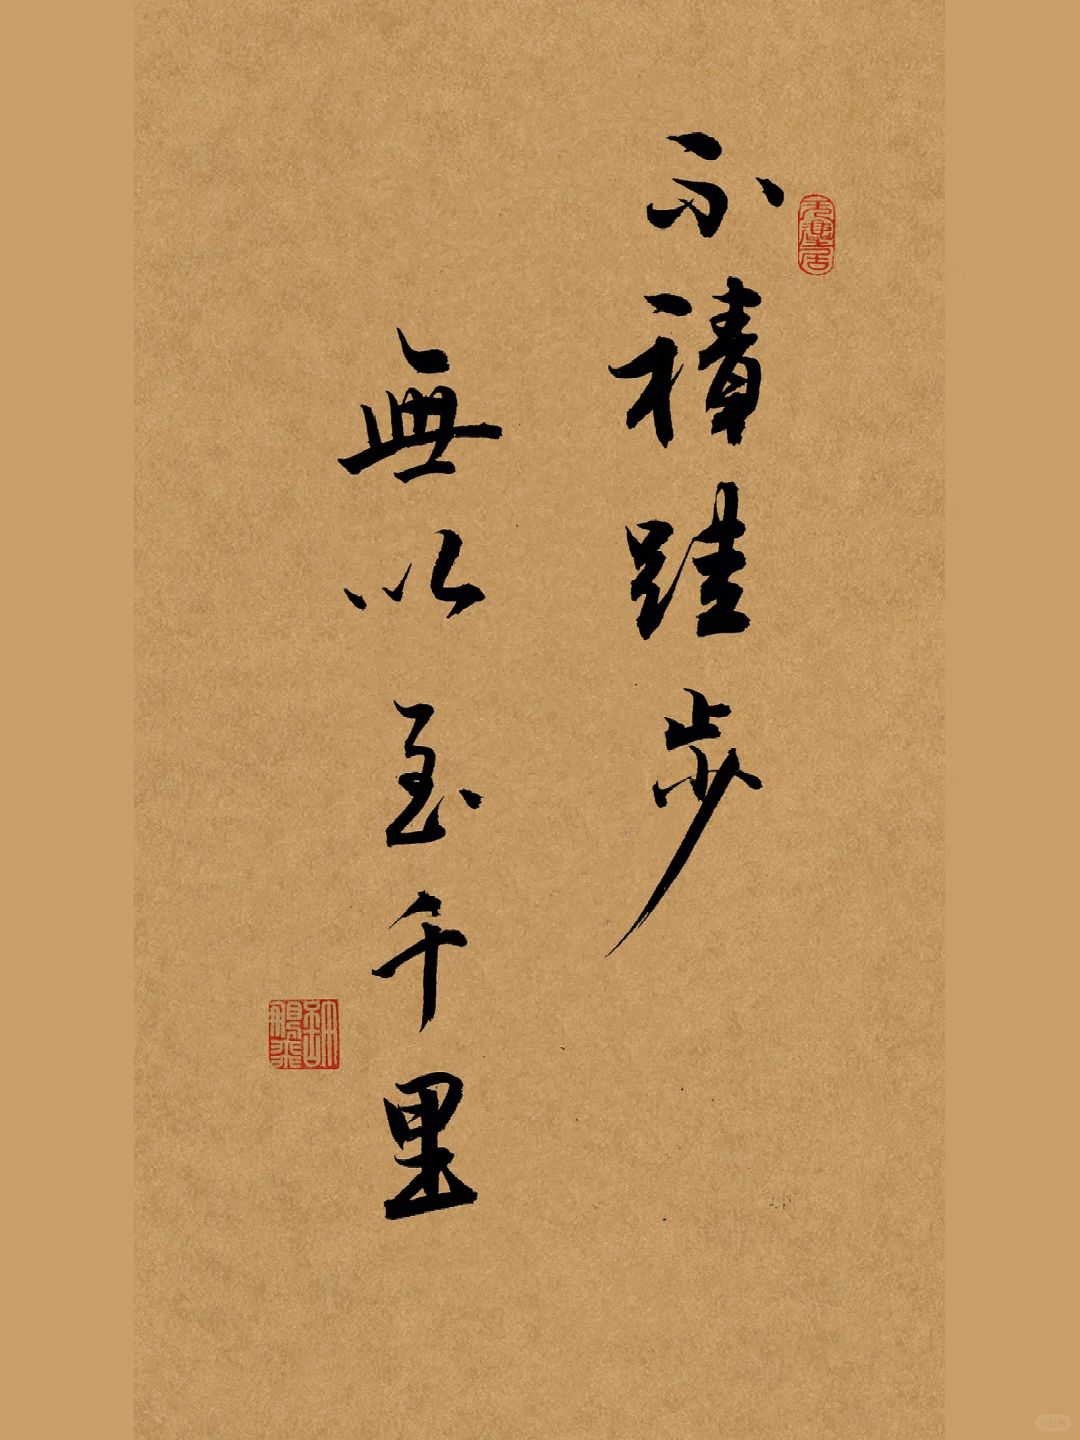 不積跬步
無以至千里